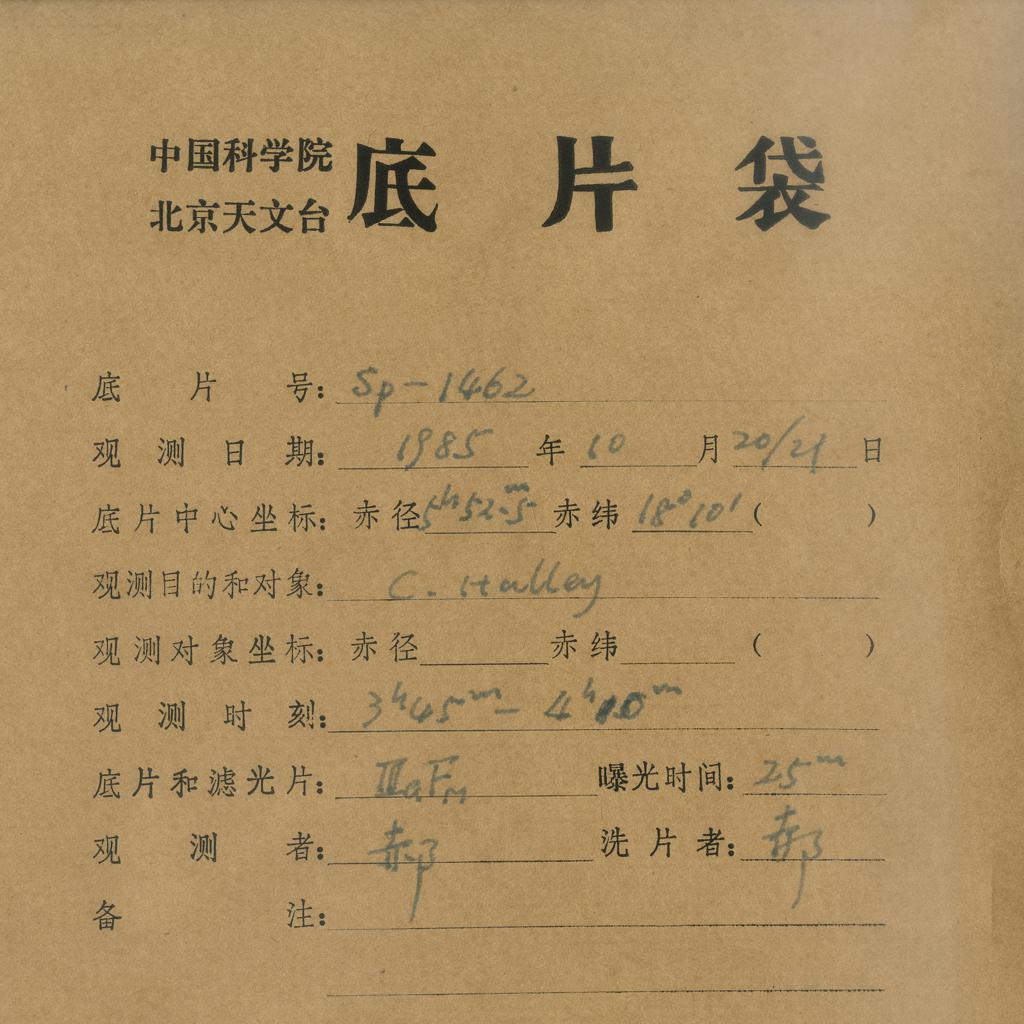 中国科学院
北京天文台
底片袋
底片号：Sp-1462
观测日期：1985年10月20/21日
底片中心坐标：赤径5h52m.5赤纬18°10′（ ）
观测目的和对象：C. Halley
观测对象坐标：赤径 赤纬 （ ）
观测时刻：3h45m-4h10m
底片和滤光片：ⅢaF 曝光时间：25m
观测者：郝 洗片者：郝
备注：